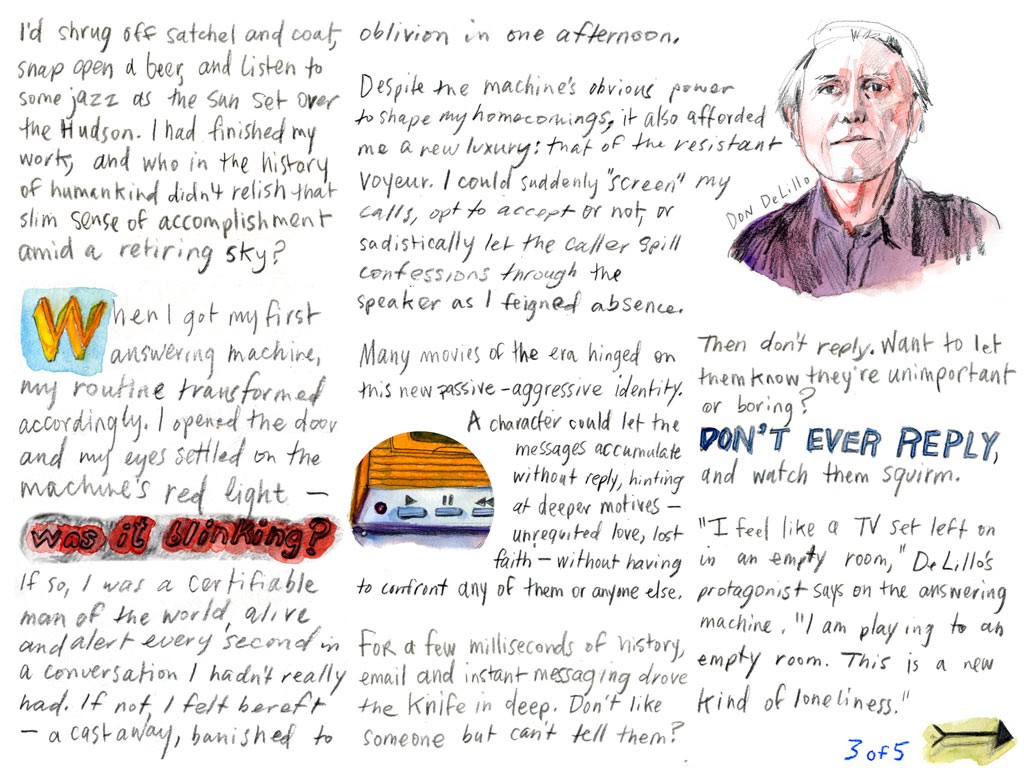 I'd shrug off satchel and coat,
snap open a beer, and listen to
some jazz as the sun set over
the Hudson. I had finished my
work, and who in the history
of humankind didn't relish that
slim sense of accomplishment
amid a retiring sky?
When I got my first
answering machine,
my routine transformed
accordingly. I opened the door
and my eyes settled on the
machine's red light —
was it blinking?
If so, I was a certifiable
man of the world, alive
and alert every second in
a conversation I hadn't really
had. If not, I felt bereft
— a castaway, banished to
oblivion in one afternoon.
Despite the machine's obvious power
to shape my homecomings, it also afforded
me a new luxury: that of the resistant
voyeur. I could suddenly "screen" my
calls, opt to accept or not, or
sadistically let the caller spill
confessions through the
speaker as I feigned absence.
Many movies of the era hinged on
this new passive-aggressive identity.
A character could let the
messages accumulate
without reply, hinting
at deeper motives —
unrequited love, lost
faith — without having
to confront any of them or anyone else.
For a few milliseconds of history,
email and instant messaging drove
the knife in deep. Don't like
someone but can't tell them?
DON DeLILLO
Then don't reply. Want to let
them know they're unimportant
or boring?
DON'T EVER REPLY,
and watch them squirm.
"I feel like a TV set left on
in an empty room," DeLillo's
protagonist says on the answering
machine. "I am playing to an
empty room. This is a new
kind of loneliness."
3 of 5